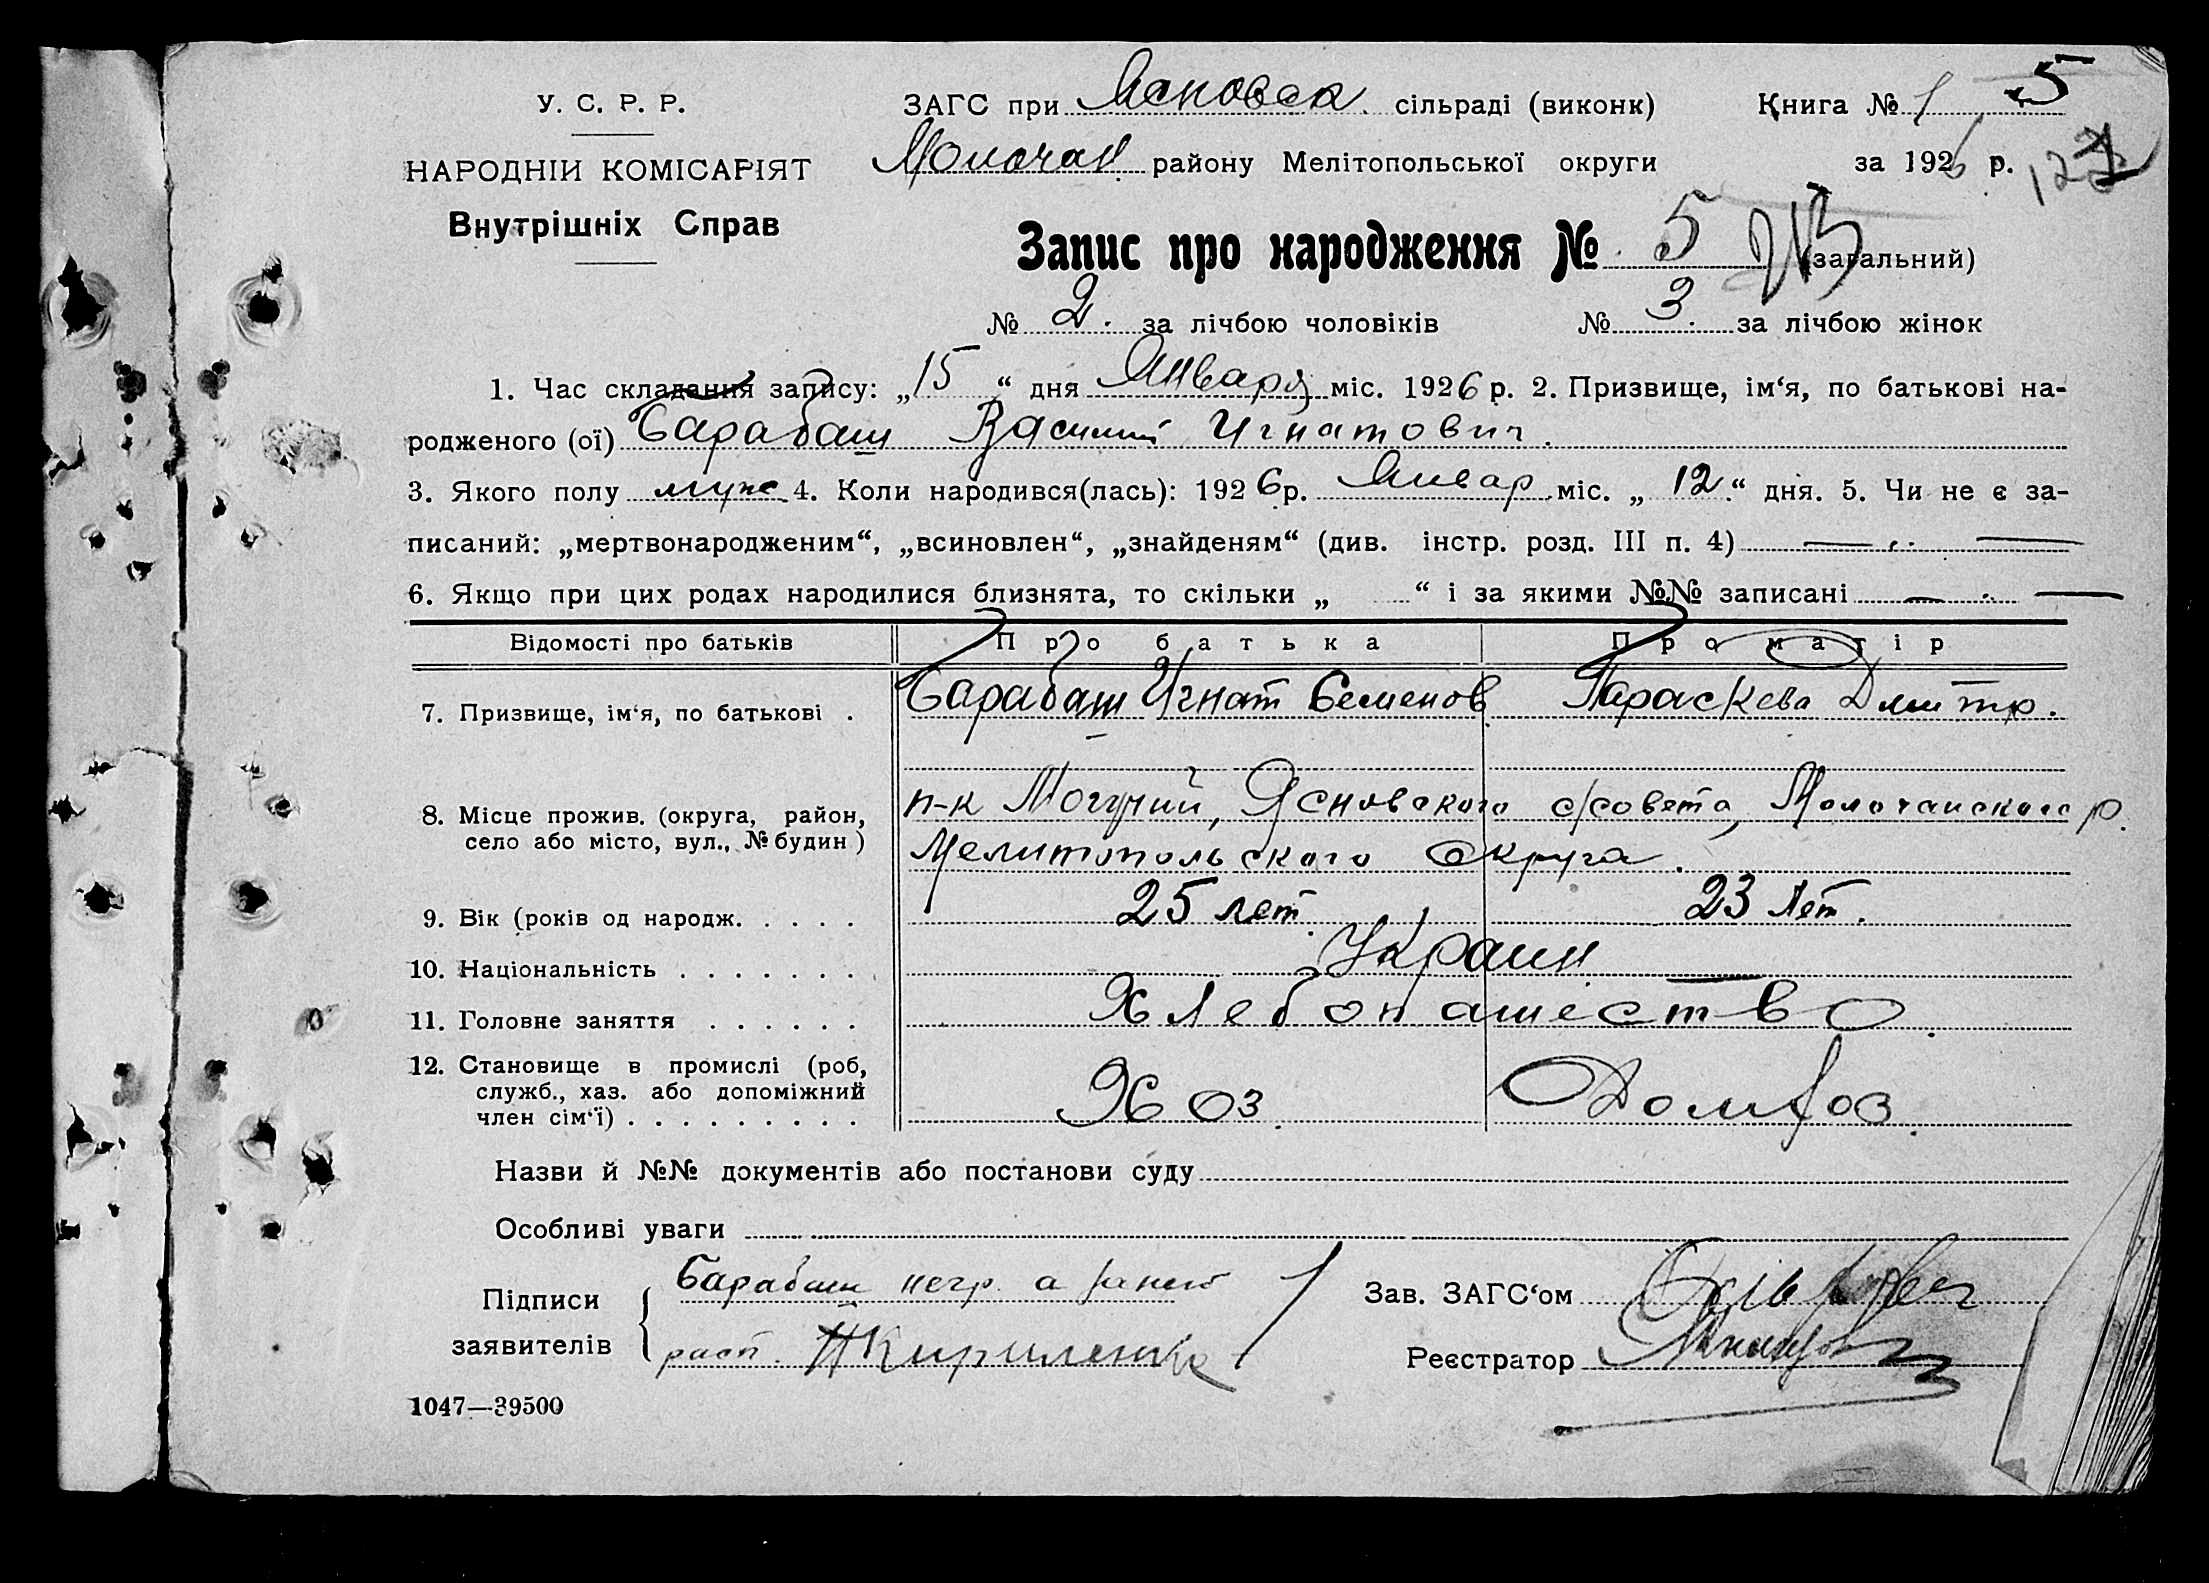 У. С. Р. Р.
НАРОДНІЙ КОМІСАРІЯТ
Внутрішніх Справ
ЗАГС при Ясновск. сільраді (виконк)
Молочан. району Мелітопольської округи
Книга № 1 5
за 1926 р. 127
Запис про народження № 5 (загальний)
№ 2. за лічбою чоловіків № 3. за лічбою жінок
1. Час складання запису: „15“ дня Января міс. 1926 р. 2. Призвище, ім‘я, по батькові на-
родженого (ої) Барабаш Василий Игнатович.
3. Якого полу муже 4. Коли народився(лась): 1926 р. Январ. міс. „12.“ дня. 5. Чи не є за-
писаний: „мертвонародженим“, „всиновлен“, „знайденям“ (див. інстр. розд. III п. 4) —
6. Якщо при цих родах народилися близнята, то скільки „ “ і за якими №№ записані —
Відомості про батьків Про батька Про матір
7. Призвище, ім‘я, по батькові . Барабаш Игнат Семенов Параскева Дмитр.
8. Місце прожив. (округа, район, село або місто, вул., № будин) п-к Могучий, Ясновского с/совета, Молочанского р.
Мелитопольского округа.
9. Вік (років од народж. . . . . 25 лет 23 лет.
10. Національність . . . . . . . Украин
11. Головне заняття . . . . . . Хлебопашество.
12. Становище в промислі (роб, служб., хаз. або допоміжний член сім‘ї) . . . . . . . . . Хоз. Домхоз.
Назви й №№ документів або постанови суду
Особливі уваги
Підписи заявителів Барабаш негр. а за него
расп. Кириленко
Зав. ЗАГС‘ом
Реєстратор
1047—39500